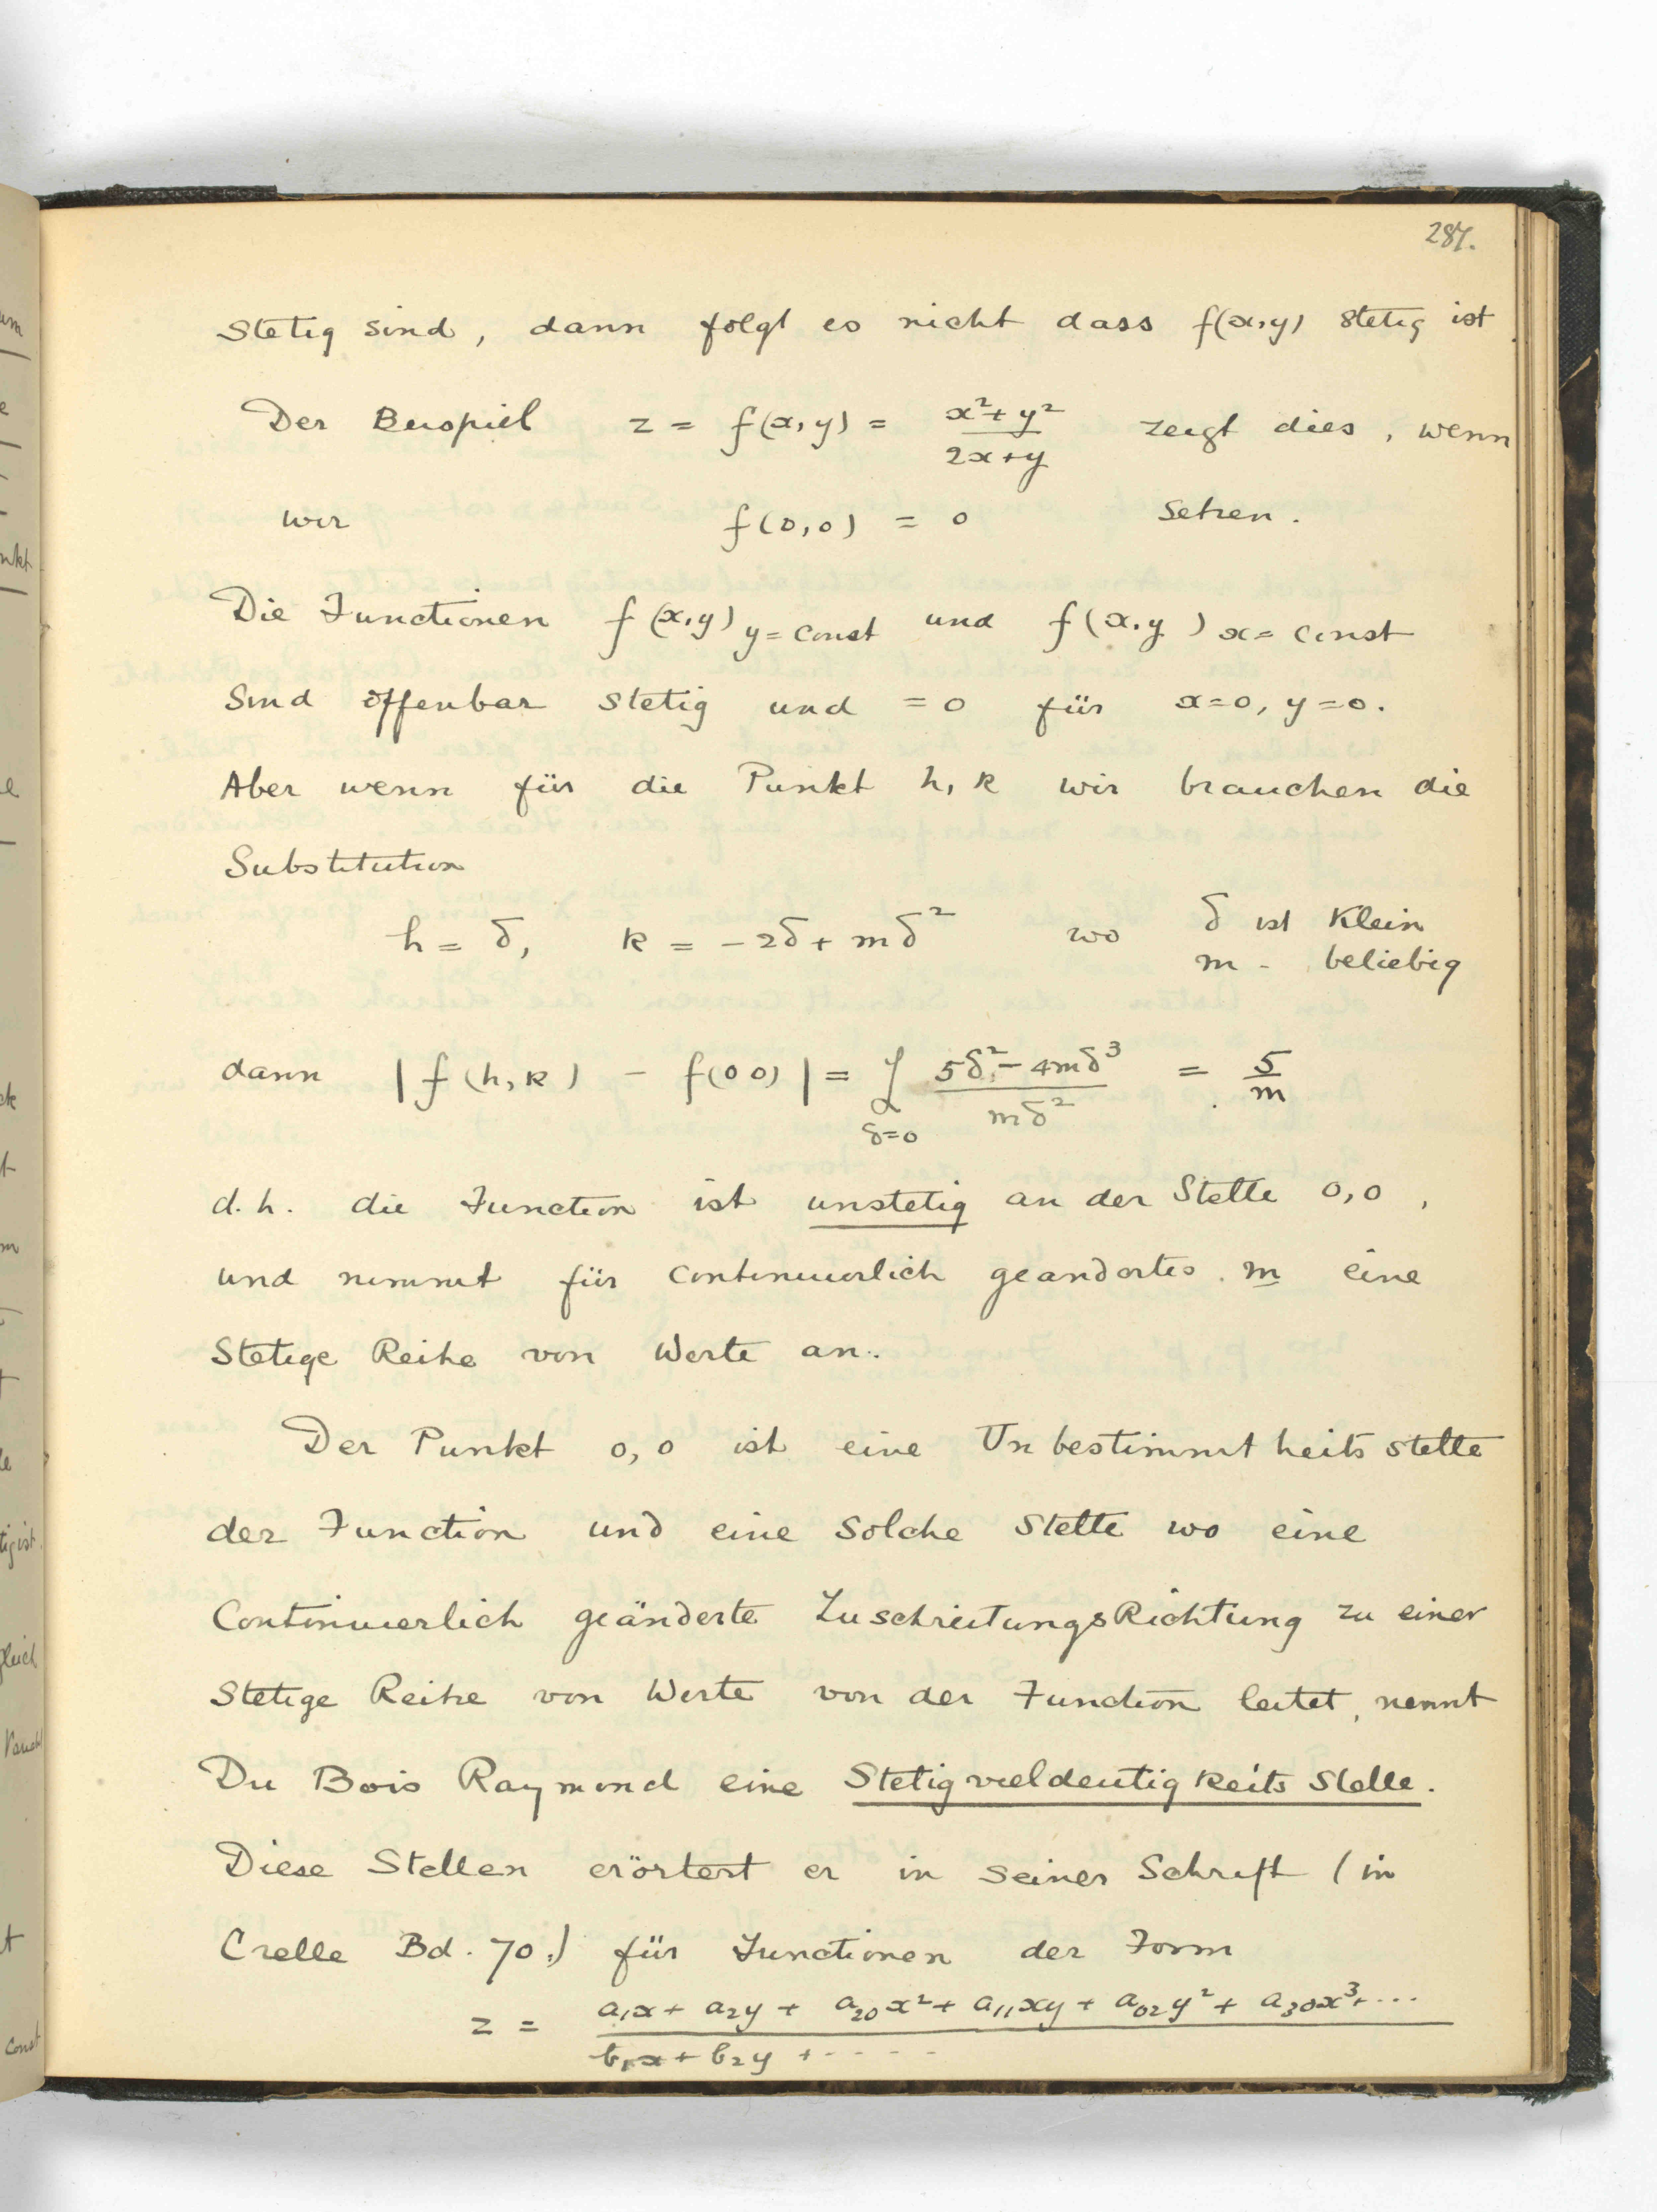 287.
Stetig sind, dann folgt es nicht dass f(x,y) stetig ist
Der Beispiel z = f(x,y) = (x²+y²)/(2x+y) zeigt dies, wenn
wir f(0,0) = 0 setzen.
Die Functionen f(x,y) y=const und f(x,y) x=const
Sind offenbar stetig und =0 für x=0, y=0.
Aber wenn für die Punkt h, k wir brauchen die
Substitution
h = δ, k = -2δ + mδ² wo δ ist Klein
m - beliebig
dann |f(h,k) - f(00)| = L δ=0 (5δ²-4mδ³)/(mδ²) = 5/m
d.h. die Function ist unstetig an der Stelle 0,0,
und nimmt für continuierlich geandertes m eine
Stetige Reihe von Werte an.
Der Punkt 0,0 ist eine Unbestimmtheitsstelle
der Function und eine solche Stelle wo eine
Continuierlich geänderte Zuschreitungs Richtung zu einer
Stetige Reihe von Werte von der Function leitet, nennt
Du Bois Raymond eine Stetigvieldeutigkeits Stelle.
Diese Stellen erörtert er in seiner Schrift (in
Crelle Bd. 70.) für Functionen der Form
z = (a₁x + a₂y + a₂₀x² + a₁₁xy + a₀₂y² + a₃₀x³+...)/(b₁x + b₂y + .....